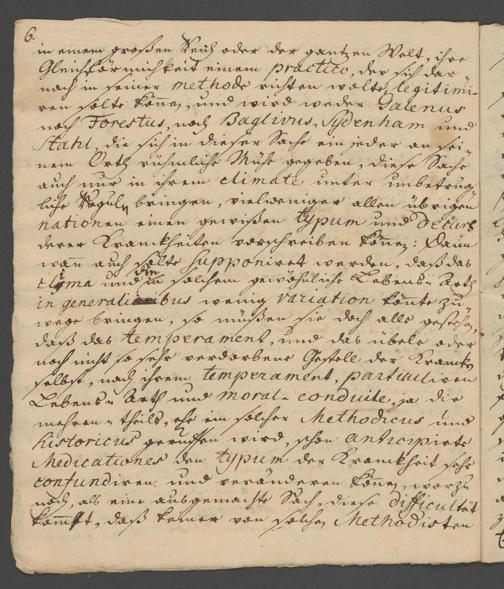 6.
in einem großen Reich oder der gantzen Welt, ihre
Gleichförmichkeit einem practico, der sich dar
nach in seiner methode richten wolte, legitimi-
ren solte könen, und wird weder Galenus
noch Forestus, noch Baglivus, Sydenham und
Stahl, die sich in dieser Sache ein jeder an sei-
nem Orth rühmliche Mühe gegeben, diese Sache
auch nur in ihrem climate unter unbetrüg-
liche Reguln bringen, vielweniger allen übrigen
nationen einen gewißen typum und Decurs
derer Kranckheiten vorschreiben könen: Dann
wann auch solte supponiret werden, daß das
clima und die in solchem gewöhnliche Lebens-Arth
in generalibus wenig variation könte zu
wege bringen, so müßen sie doch alle gestehen,
daß das temperament, und das übele oder
noch nicht so sehr verdorbene Gestell der Krancken
selbst, nach ihrem temperament, particuliren
Lebens-Arth und moral-conduite, ja die
mehren-theils, ehe ein solcher Methodicus und
historicus geruffen wird, schon anticipirte
Medicationes den typum der Kranckheit sehr
confundiren und veränderen könen, worzu
noch, als eine ausgemachte Sach, diese difficultät
kommt, daß keiner von solchen Methodisten